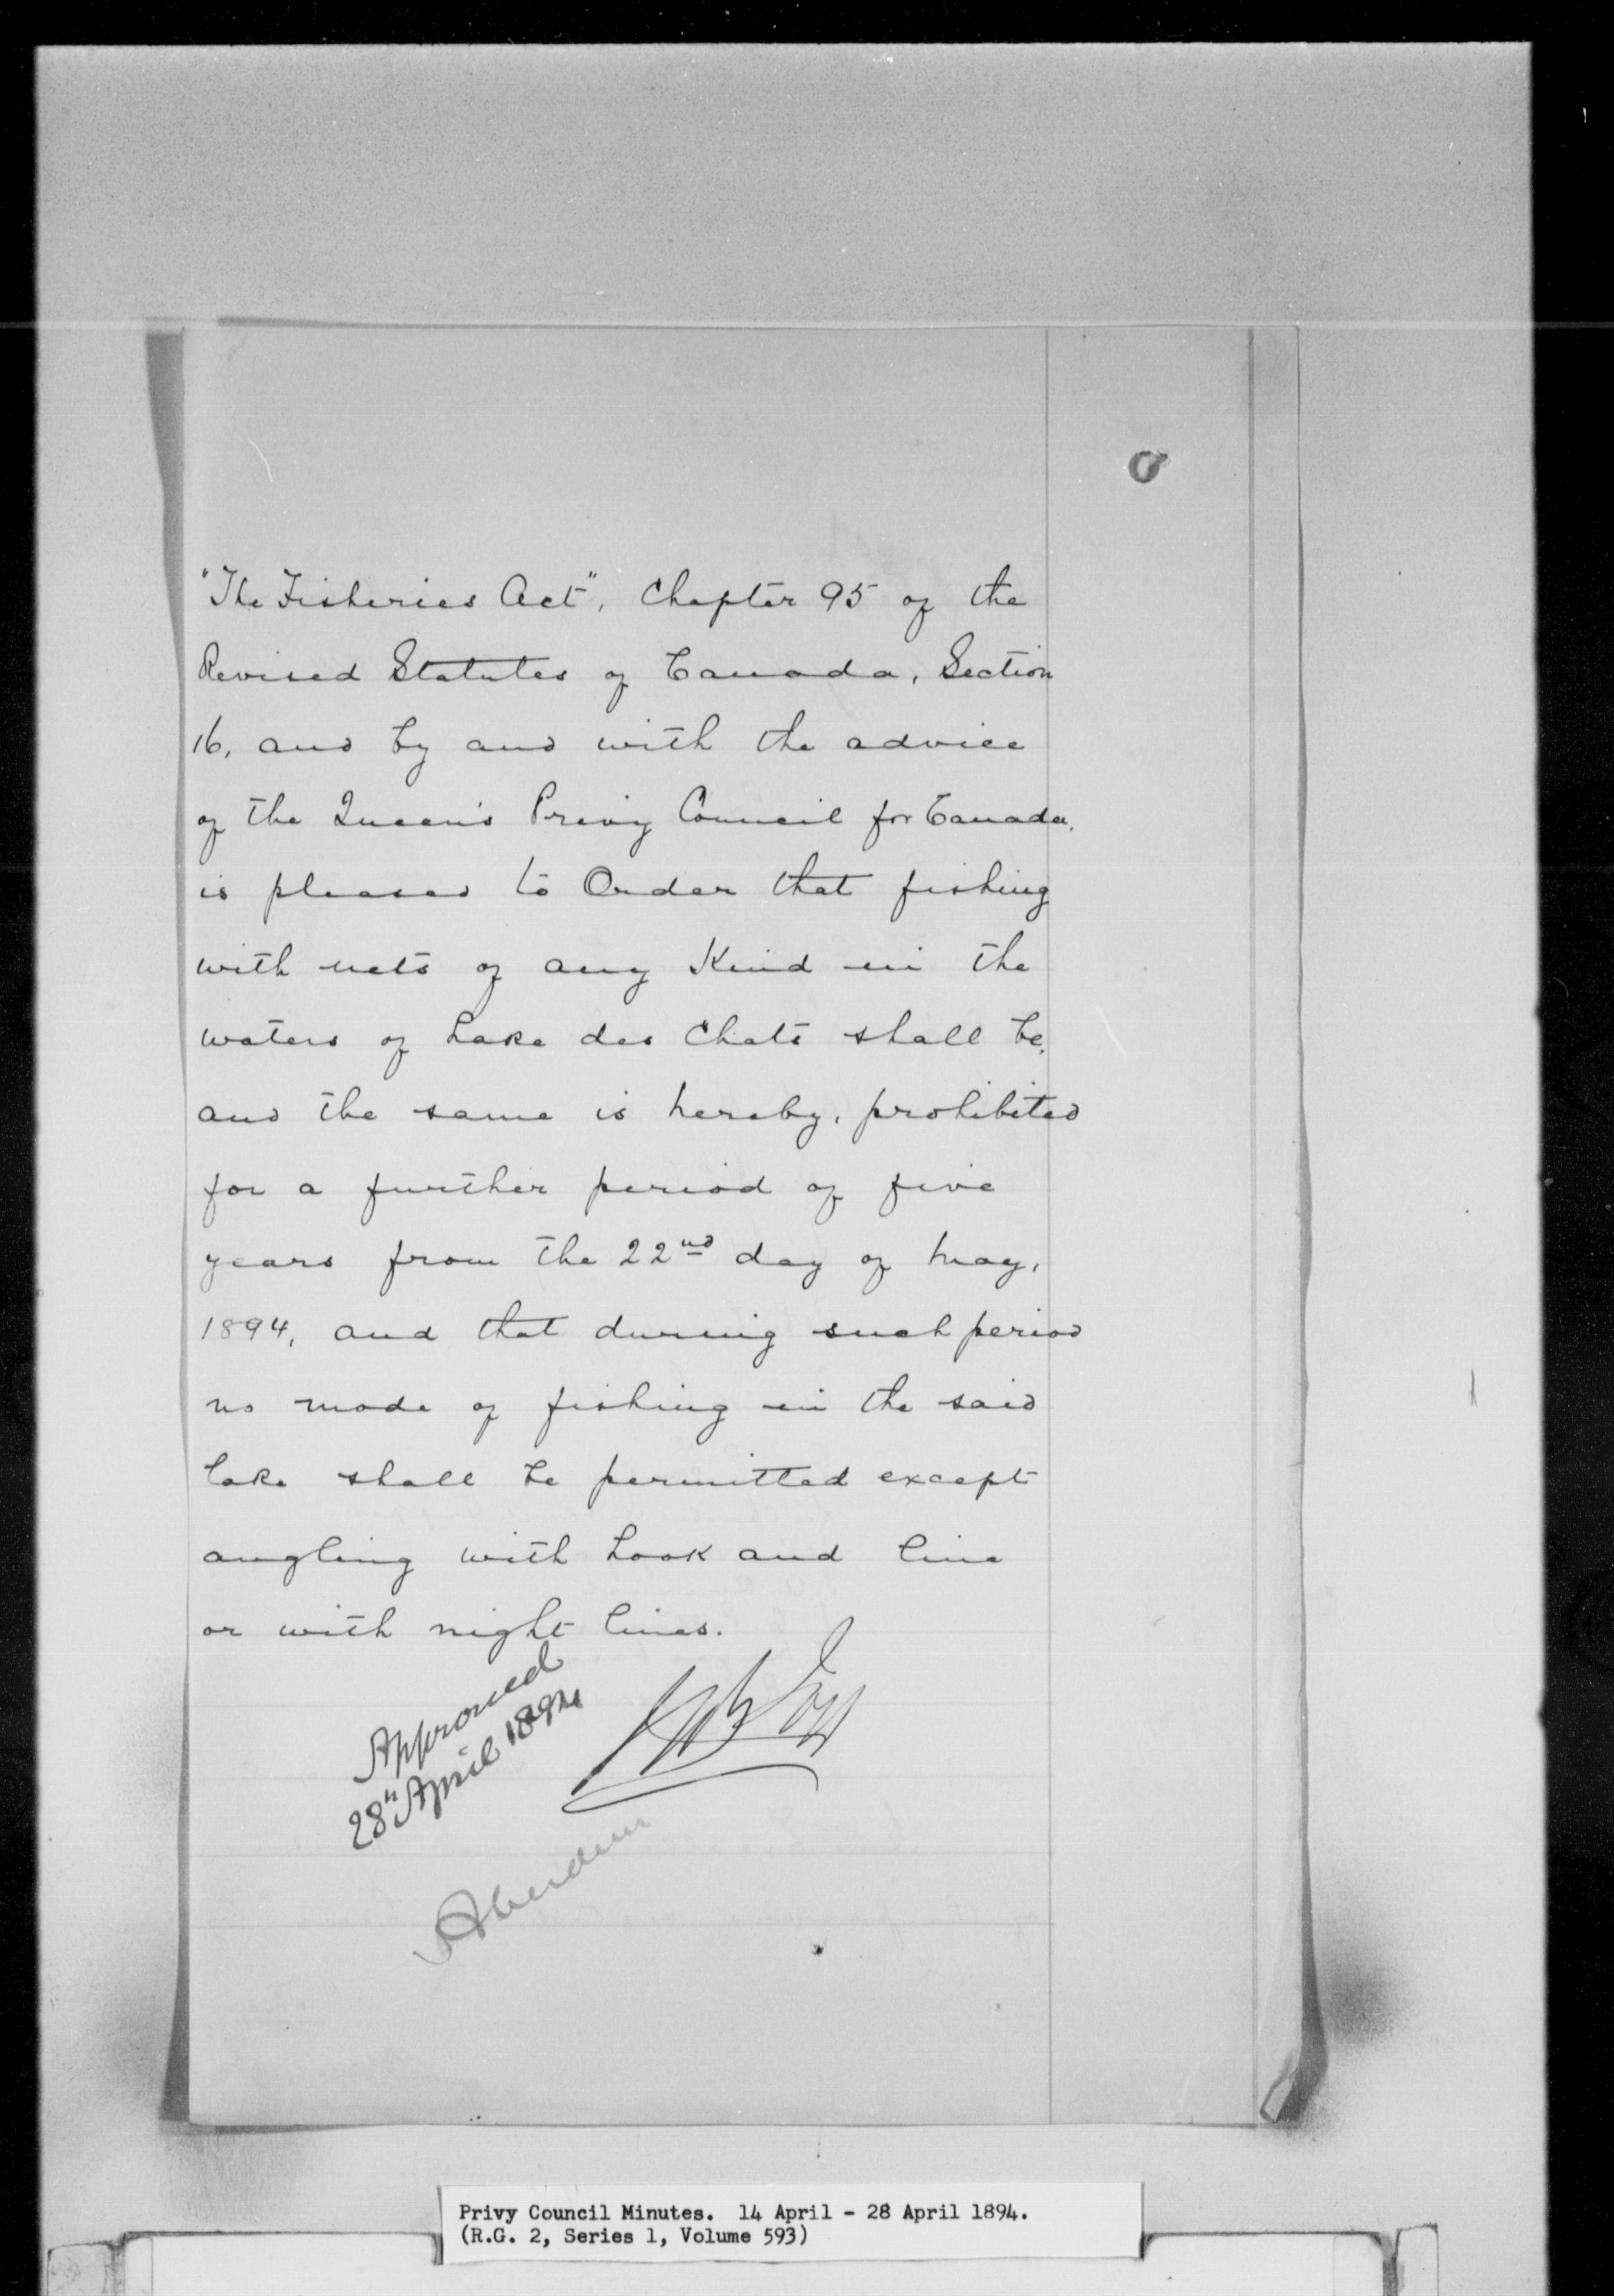 "The Fisheries Act", Chapter 95 of the
Revised Statutes of Canada, Section
16, and by and with the advice
of the Queen's Privy Council for Canada,
is pleased to Order that fishing
with nets of any Kind in the
waters of Lake des Chats shall be,
and the same is hereby, prohibited
for a further period of five
years from the 22nd day of May,
1894, and that during such period
no mode of fishing in the said
lake shall be permitted except
angling with hook and line
or with night lines.
Approved
28th April 1894
Aberdeen
Privy Council Minutes. 14 April - 28 April 1894.
(R.G. 2, Series 1, Volume 593)